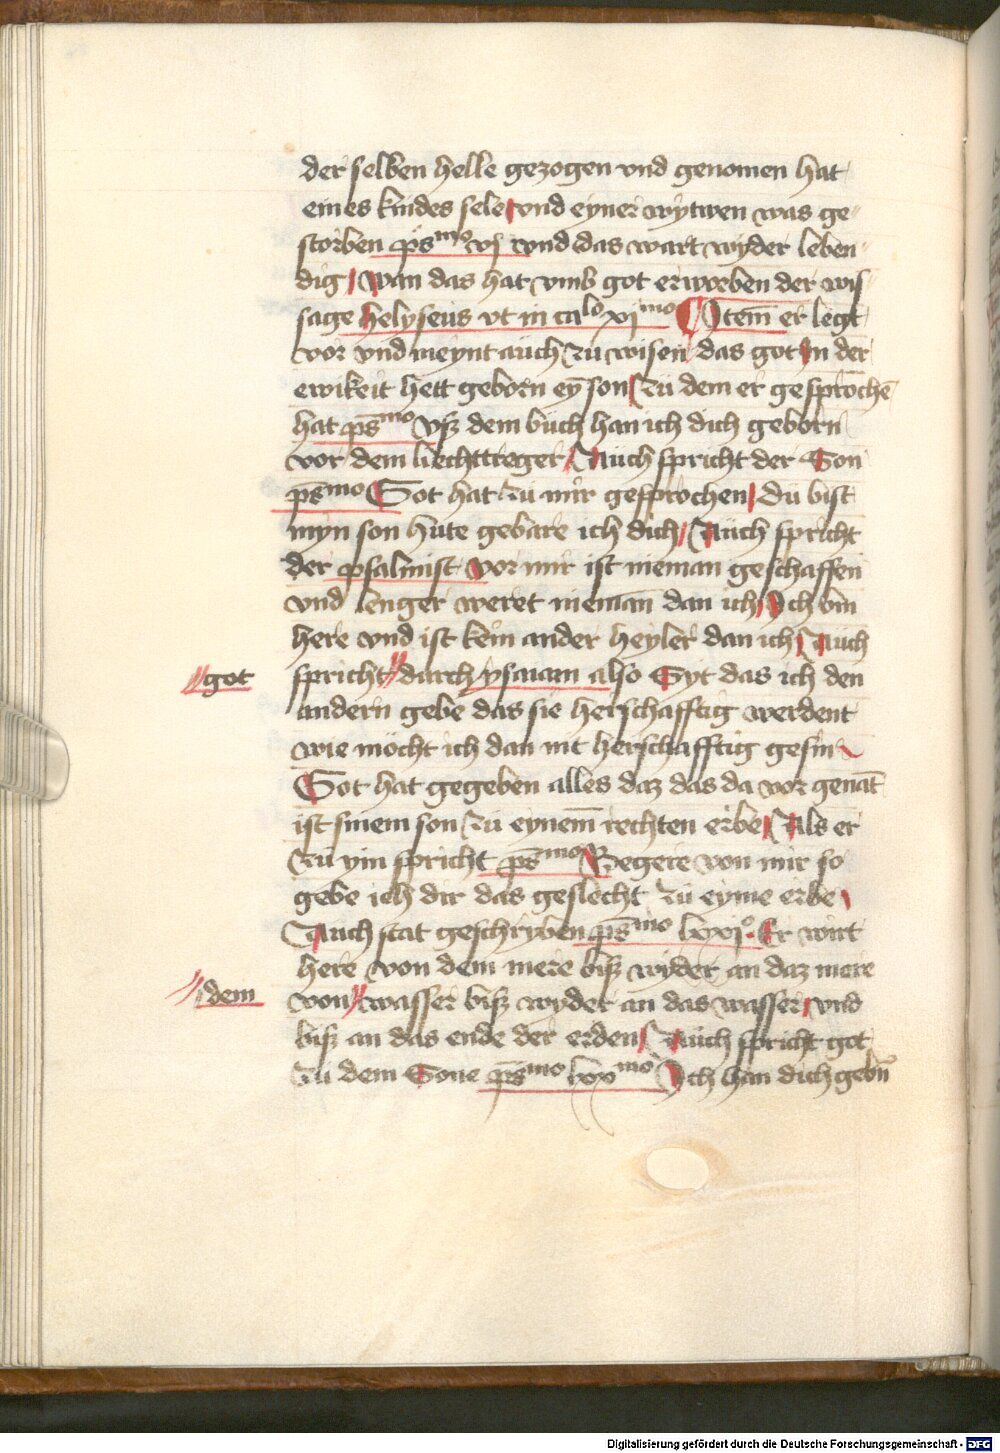 der selben helle gezogen vnd genomen hat
eines kindes sele vnd eyner wytwen was ge
storben ps̄mo vj vnd das wart wyder leben
dig wan das hat vmb got erworben der wis
sage helyseus vt in calo xjmo Item̄ er legt
vor vnd meynt auch zu wisen das got in der
ewikeit hett geborn ey̅ son zu dem er gesprochē
hat ps̄mo vsz dem buch han ich dich geborn
vor dem liechttreger Auch spricht der Son
ps̄mo Got hat zu mir gesprochen du bist
myn son hute gebare ich dich Auch spricht
der psalmist vor mir ist nieman geschaffen
vnd lenger weret niemān dan ich Ich bin
here vnd ist kein ander heyler dan ich Auch
got spricht durch ysaiam also Syt das ich den
andern gebe das sie herschafftig werdent
wie mocht ich dan nit herschafftig gesin
Got hat gegeben alles daz das da vor genāt
ist sinem son zu eynem̄ rechten erbe Als er
zu ym spricht ps̄mo Begere von mir so
gebe ich dir das geslecht zu eyme erbe
Auch stat geschryben ps̄mo lxxjo Er wirt
here von dem mere bisz wyder an daz mere
dem von wasser bisz wyder an das wasser vnd
bisz an das ende der erden Auch spricht got
zu dem Sone ps̄mo lxxmo Ich han dich gebn̄
Digitalisierung gefördert durch die Deutsche Forschungsgemeinschaft - DFG